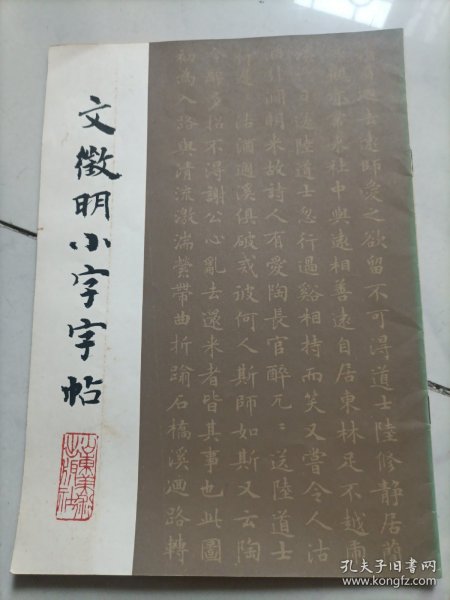 文徵明小字字帖
山東美術出版社
去遠師愛之欲留不可得道士陸修靜居簡
觀亦常來社中與遠相善遠自居東林足不越虎
溪一日送陸道士忽行過谿相持而笑又嘗令人沽
酒引淵明來故詩人有愛陶長官醉兀〻送陸道士
行遲〻沽酒過溪俱破戒彼何人斯師如斯又云陶
令醉多招不得謝公心亂去還來者皆其事也此圖
初為入路與清流激湍縈帶曲折踰石橋溪迴路轉
孔夫子旧书网
www.kongfz.com